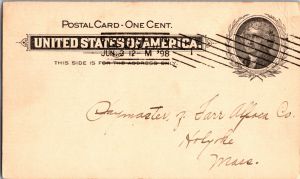 POSTAL CARD - ONE CENT.
UNITED STATES OF AMERICA.
JUN 2 12-M '98
THIS SIDE IS FOR THE ADDRESS ONLY.
Paymaster, of Farr Alpaca Co.
Holyoke
Mass.